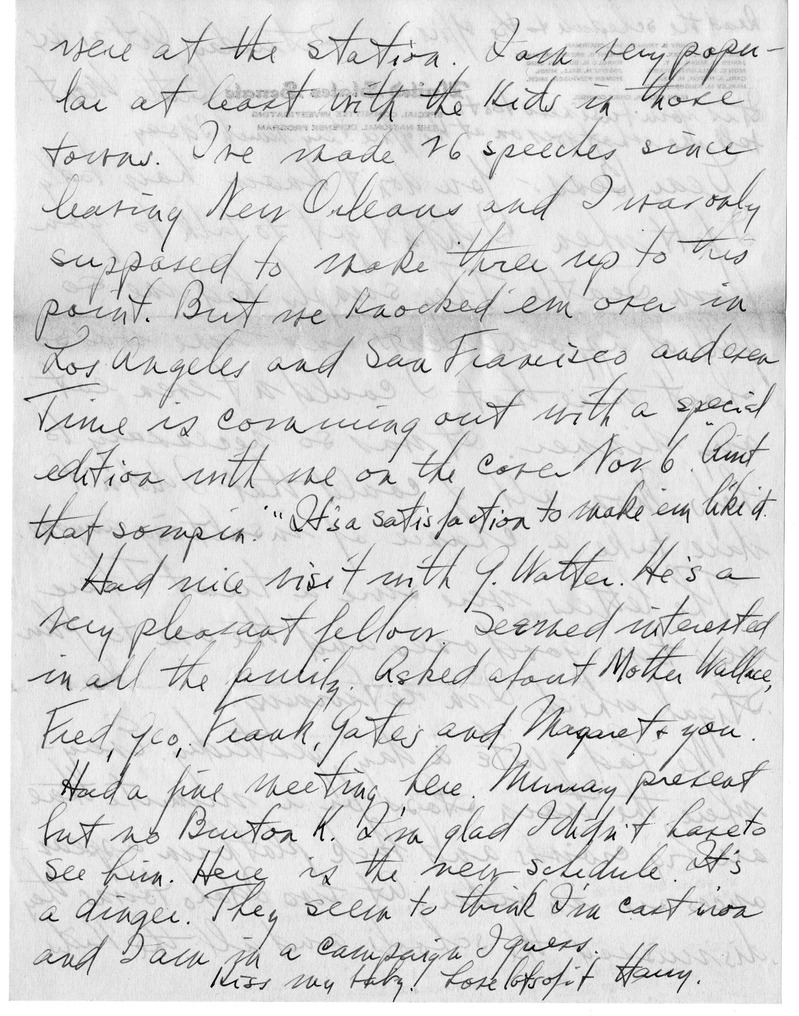 were at the station. I am very popu-
lar at least with the kids in those
towns. I've made 26 speeches since
leaving New Orleans and I was only
supposed to make three up to this
point. But we knocked 'em over in
Los Angeles and San Francisco and even
Time is comming out with a special
edition with me on the cover Nov 6. "Aint
that sompin." "It's a satisfaction to make 'em like it."
Had nice visit with G. Walter. He's a
very pleasant fellow. Seemed interested
in all the family. Asked about Mother Wallace,
Fred, Geo, Frank, Yates and Magaret & you.
Had a fine meeting here. Murray present
but no Burton K. I'm glad I didn't have to
see him. Here is the new schedule. It's
a dinger. They seem to think I'm cast iron
and I am in a campaign I guess.
Kiss my baby. Love lots of it Harry.